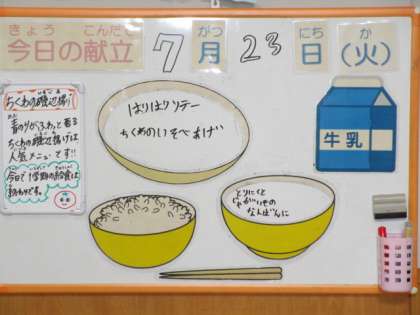 きょう こんだて
今日の献立
7
がつ
月
23
にち
日
か
(火)
ちくわの磯辺揚げ
青のりがふわっと香る
ちくわの磯辺揚げは
人気メニューです!!
今日で1学期の給食は
終わりです。
はりはりソテー
ちくわのいそべあげ
牛乳
とりにくと
じゃがいもの
なんばんに